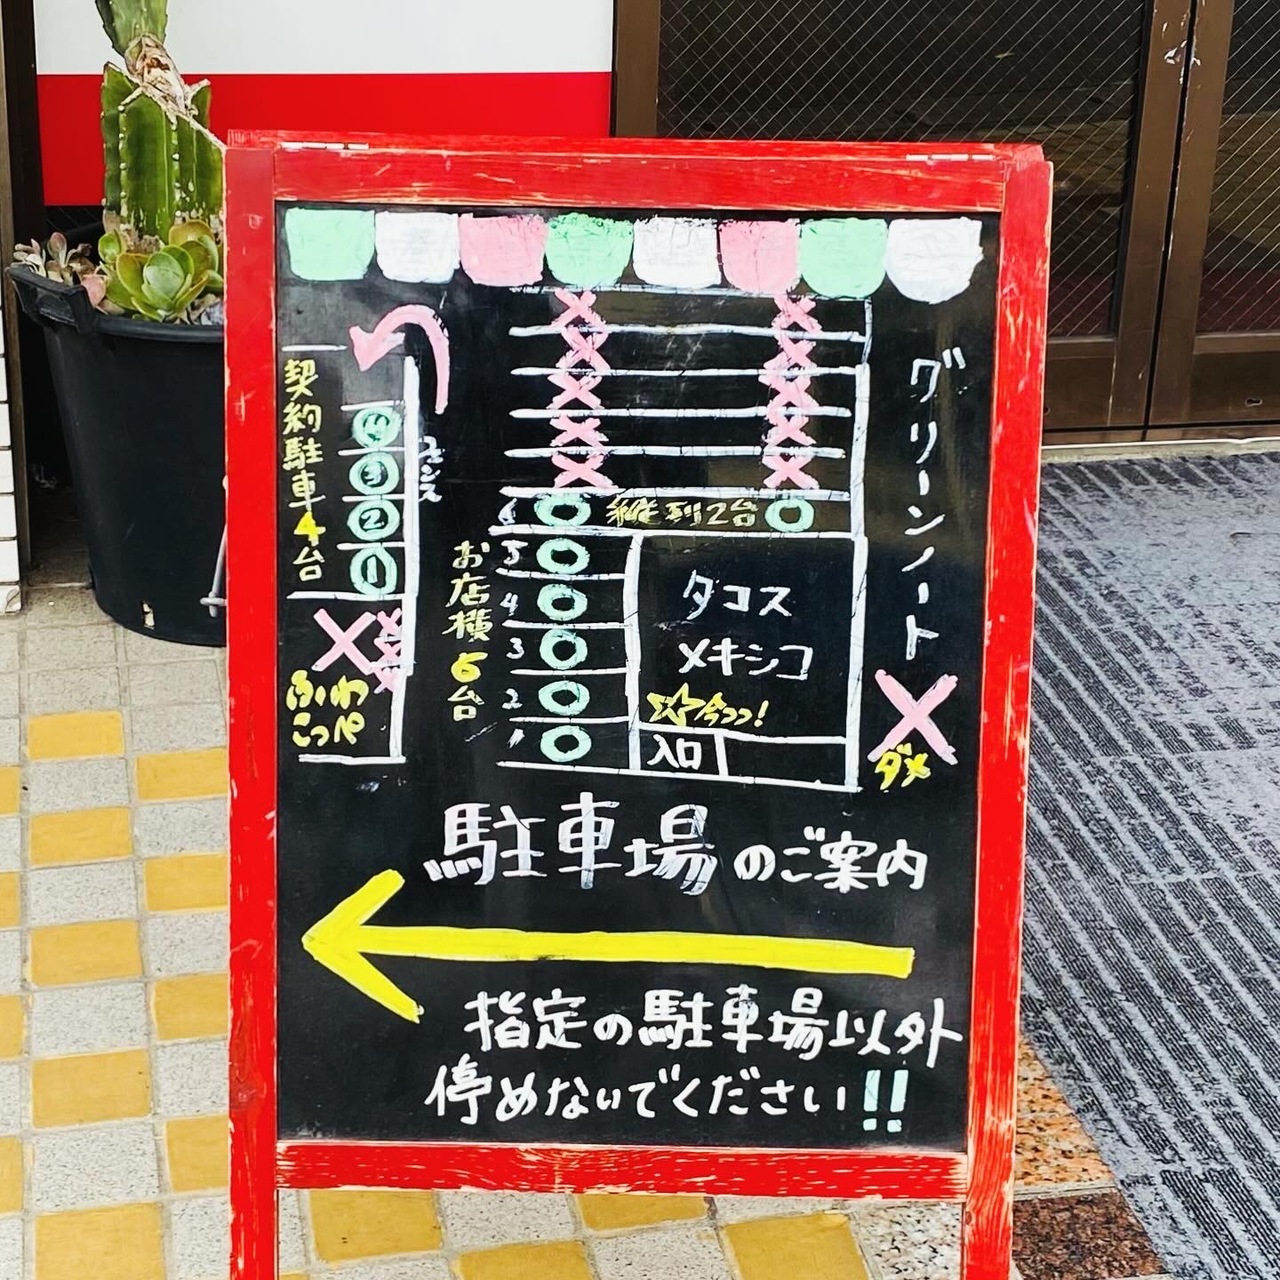 グリーンノート
ダメ
6
縦列2台
5
4
3
2
1
お店横
6台
タコス
メキシコ
☆今ココ!
入口
フェンス
契約駐車4台
④
③
②
①
ふわ
こっぺ
駐車場のご案内
指定の駐車場以外
停めないでください!!